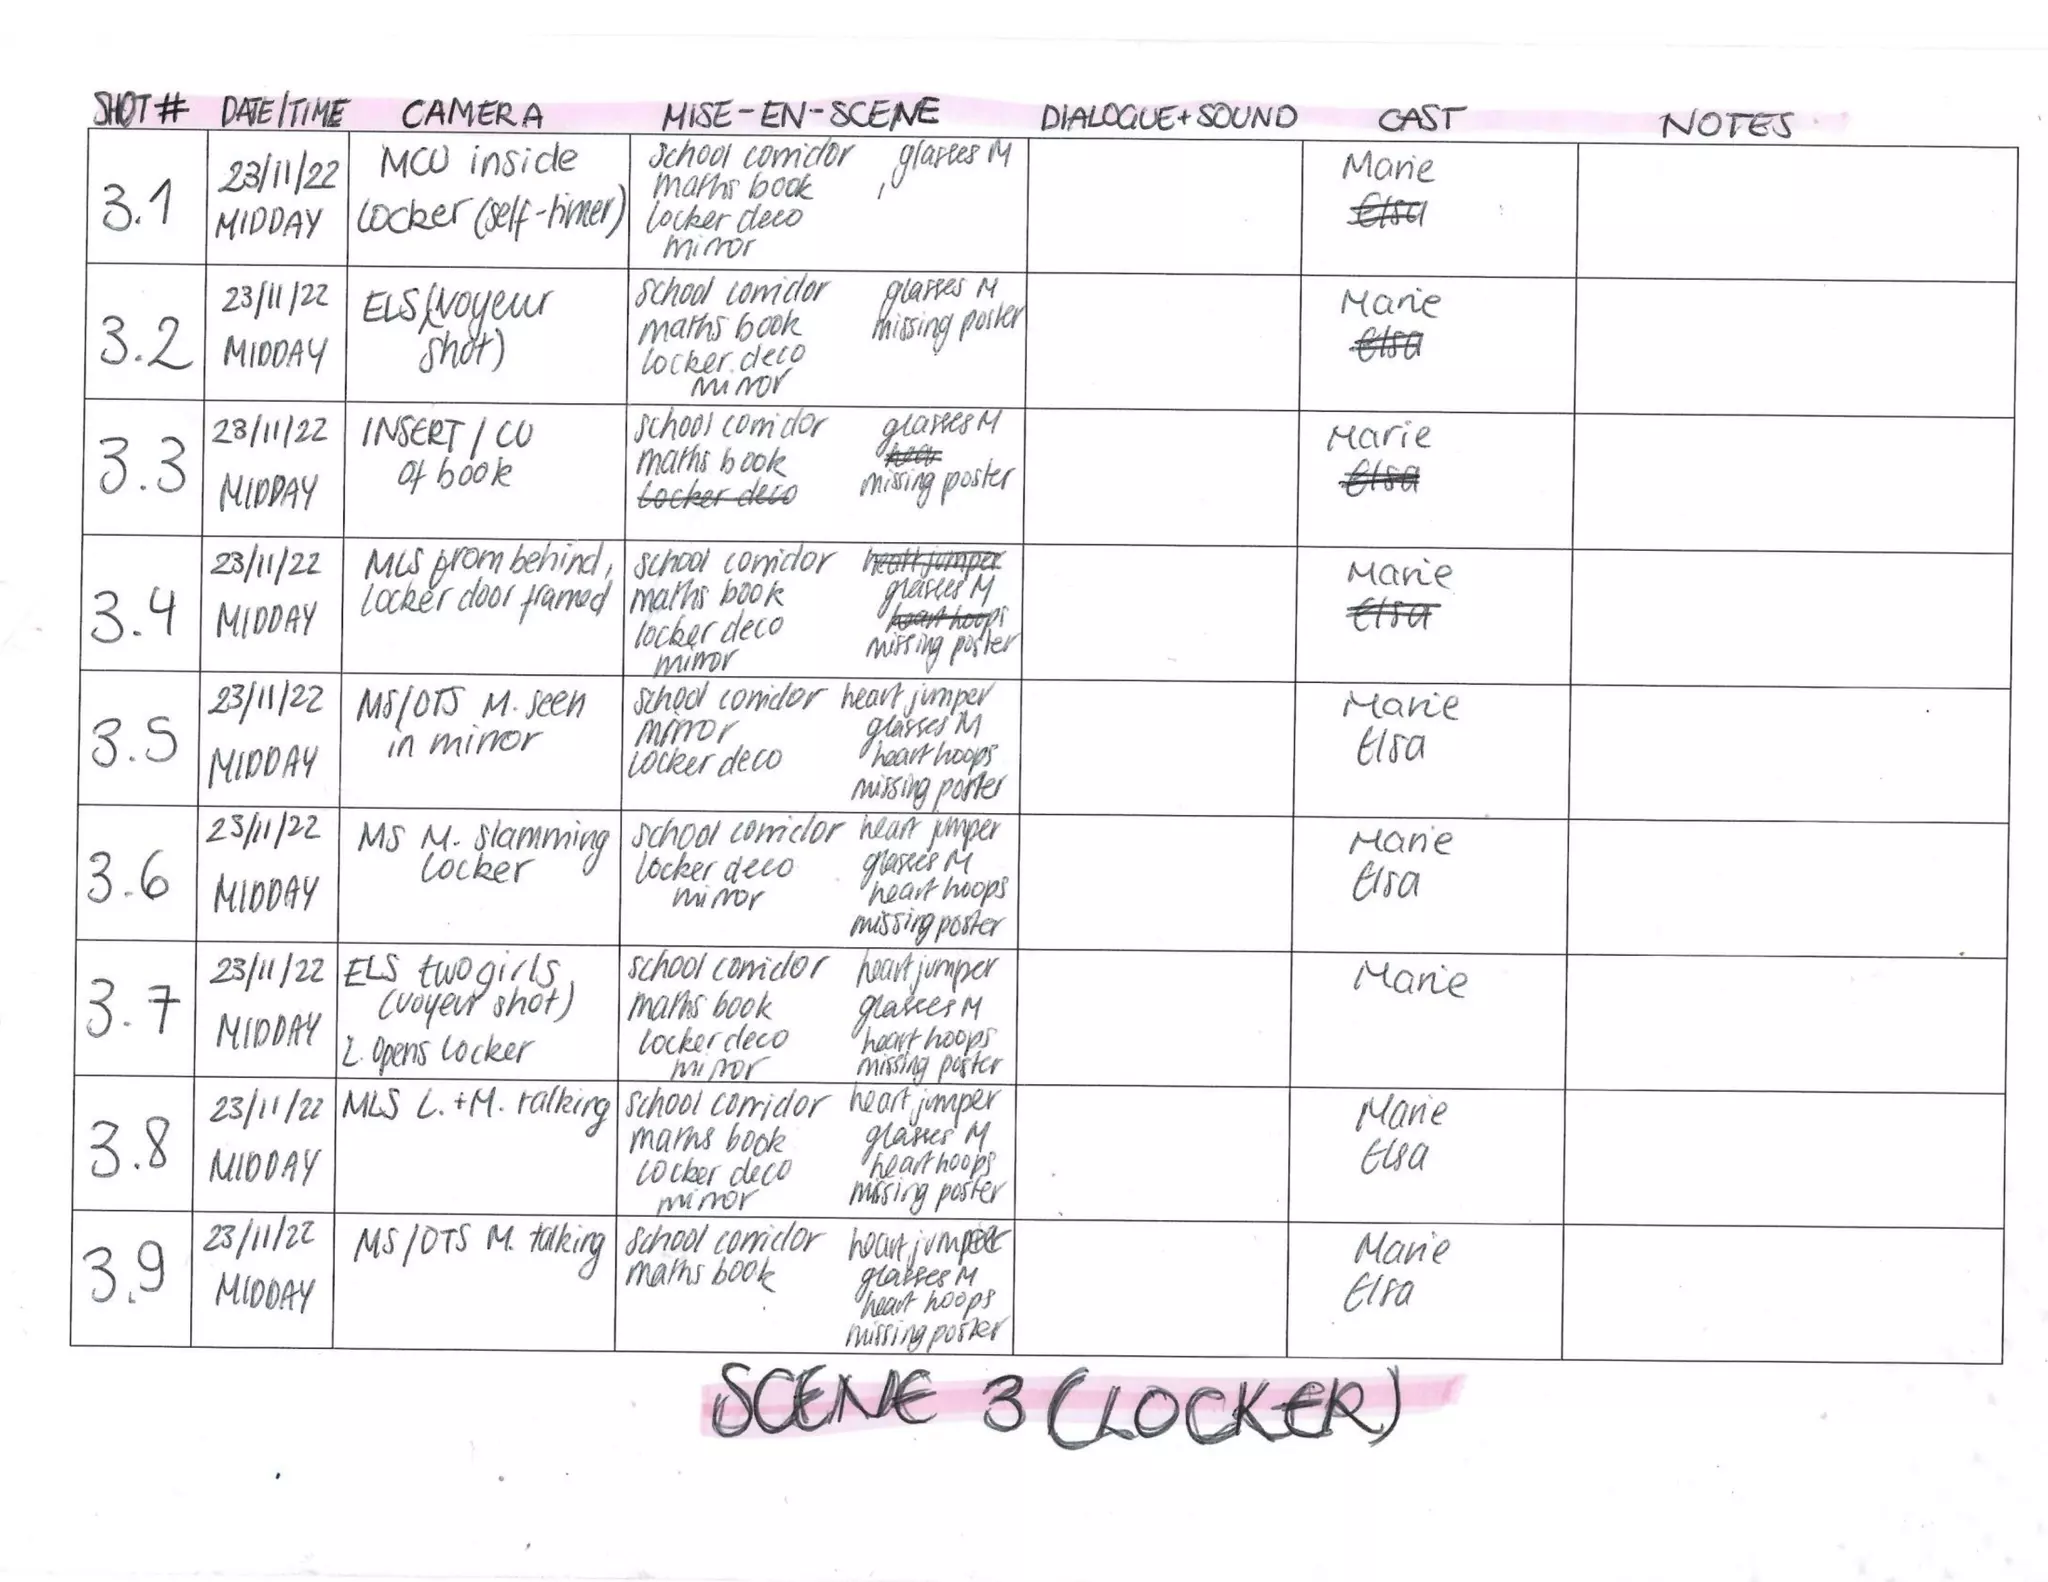 SHOT # DATE/TIME CAMERA MISE-EN-SCENE DIALOGUE + SOUND CAST NOTES
3.1
23/11/22
MIDDAY
MCU inside
Locker (self-timer)
school corridor
maths book
locker deco
mirror
glasses M
Marie
Elsa
3.2
23/11/22
MIDDAY
ELS (voyeur
shot)
school corridor
maths book
locker deco
mirror
glasses M
missing poster
Marie
Elsa
3.3
23/11/22
MIDDAY
INSERT / CU
of book
school corridor
maths book
locker deco
glasses M
missing poster
Marie
Elsa
3.4
23/11/22
MIDDAY
MLS from behind,
locker door framed
school corridor
maths book
locker deco
mirror
heart jumper
glasses M
heart hoops
missing poster
Marie
Elsa
3.5
23/11/22
MIDDAY
MS/OTS M. seen
in mirror
school corridor
mirror
locker deco
heart jumper
glasses M
heart hoops
missing poster
Marie
Elsa
3.6
23/11/22
MIDDAY
MS M. slamming
locker
school corridor
locker deco
mirror
heart jumper
glasses M
heart hoops
missing poster
Marie
Elsa
3.7
23/11/22
MIDDAY
ELS two girls
(voyeur shot)
L. opens locker
school corridor
maths book
locker deco
mirror
heart jumper
glasses M
heart hoops
missing poster
Marie
3.8
23/11/22
MIDDAY
MLS L. + M. talking
school corridor
maths book
locker deco
mirror
heart jumper
glasses M
heart hoops
missing poster
Marie
Elsa
3.9
23/11/22
MIDDAY
MS/OTS M. talking
school corridor
maths book
heart jumper
glasses M
heart hoops
missing poster
Marie
Elsa
SCENE 3 (LOCKER)